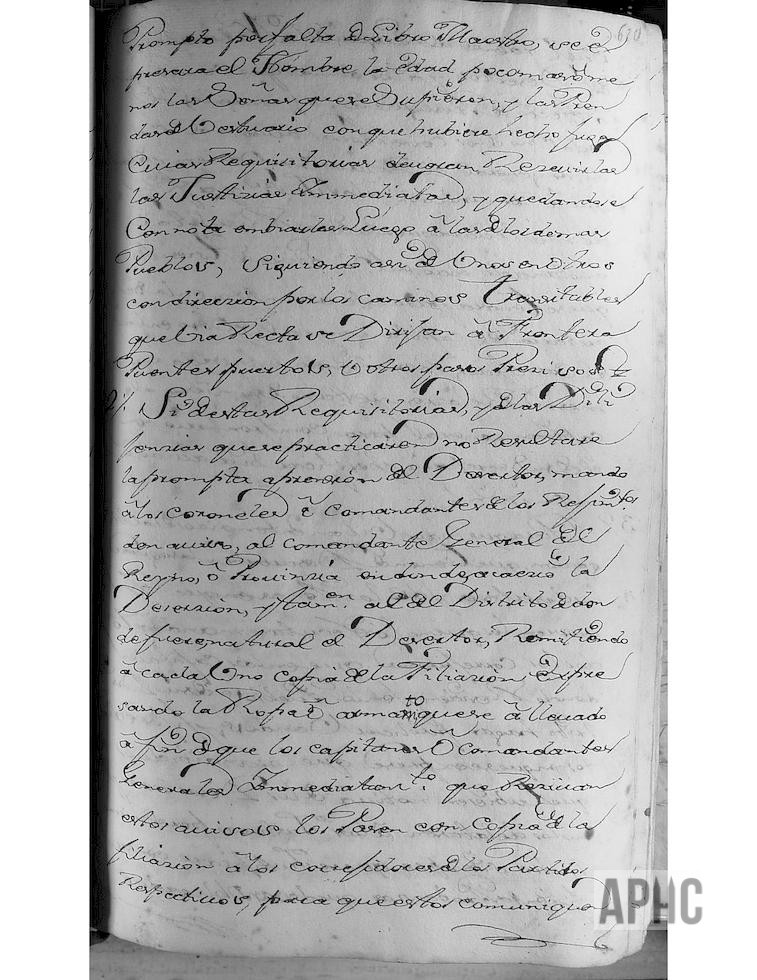 610
Prompto por falta de Libro Maestro, se ex
presara el Nombre la edad poco mas ô me
nos las Señas que se Supieren, y las Pren
das de Vestuario con que hubiere hecho fuga
Cuias Requisitorias deveran Rezivirlas
las Justizias Ymmediatas, y quedandose
Con nota embiarlas Luego â las de los demas
Pueblos, Siguiendo asi de Unos en Otros
con direczion por los caminos transitables
que Via Recta se Dirijan â Frontera
Puentes puertos, û otros pasos Prezisos
Si de estas Requisitorias, y de las Dili
jenzias que se practicaren no Resultare
la prompta aprension del Desertor, mando
â los coroneles ê Comandantes de los Rejim.tos
den aviso, al comandante General del
Reyno, ô Provinzia en donde acaeciô la
Deserzion, y tam.en al del Distrito de don
de fuere natural el Desertor, Remitiendo
â cada Uno copia de la Filiazion Expre
sando la Ropa ê armam.to que se â llevado
â fin de que los capitanes ô Comandantes
Generales Ymmediatam.te que Rezivan
estos avisos los Pasen con Copia de la
filiazion â los correjidores de los Partidos
Respectivos, para que estos comuniquen
APHC